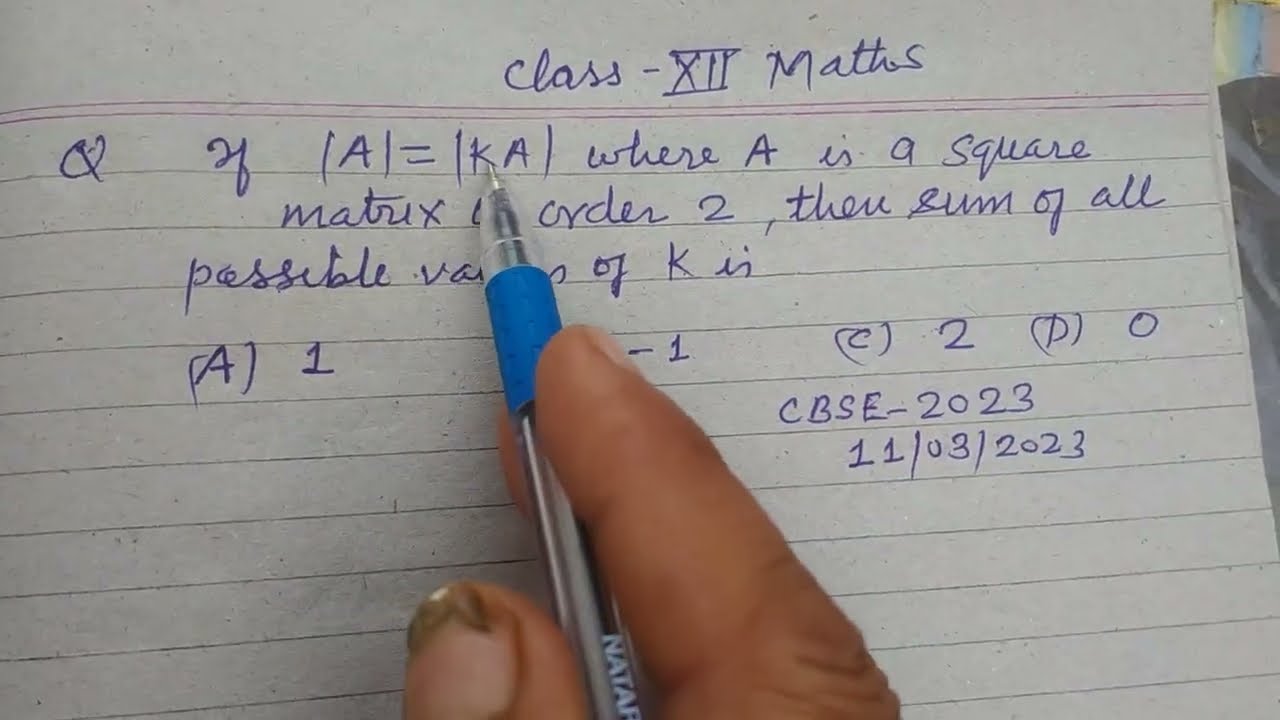 Class - XII Maths
Q If |A| = |KA| where A is a square
matrix order 2, then sum of all
possible of K is
(A) 1 -1 (C) 2 (D) 0
CBSE - 2023
11/03/2023
NATAR